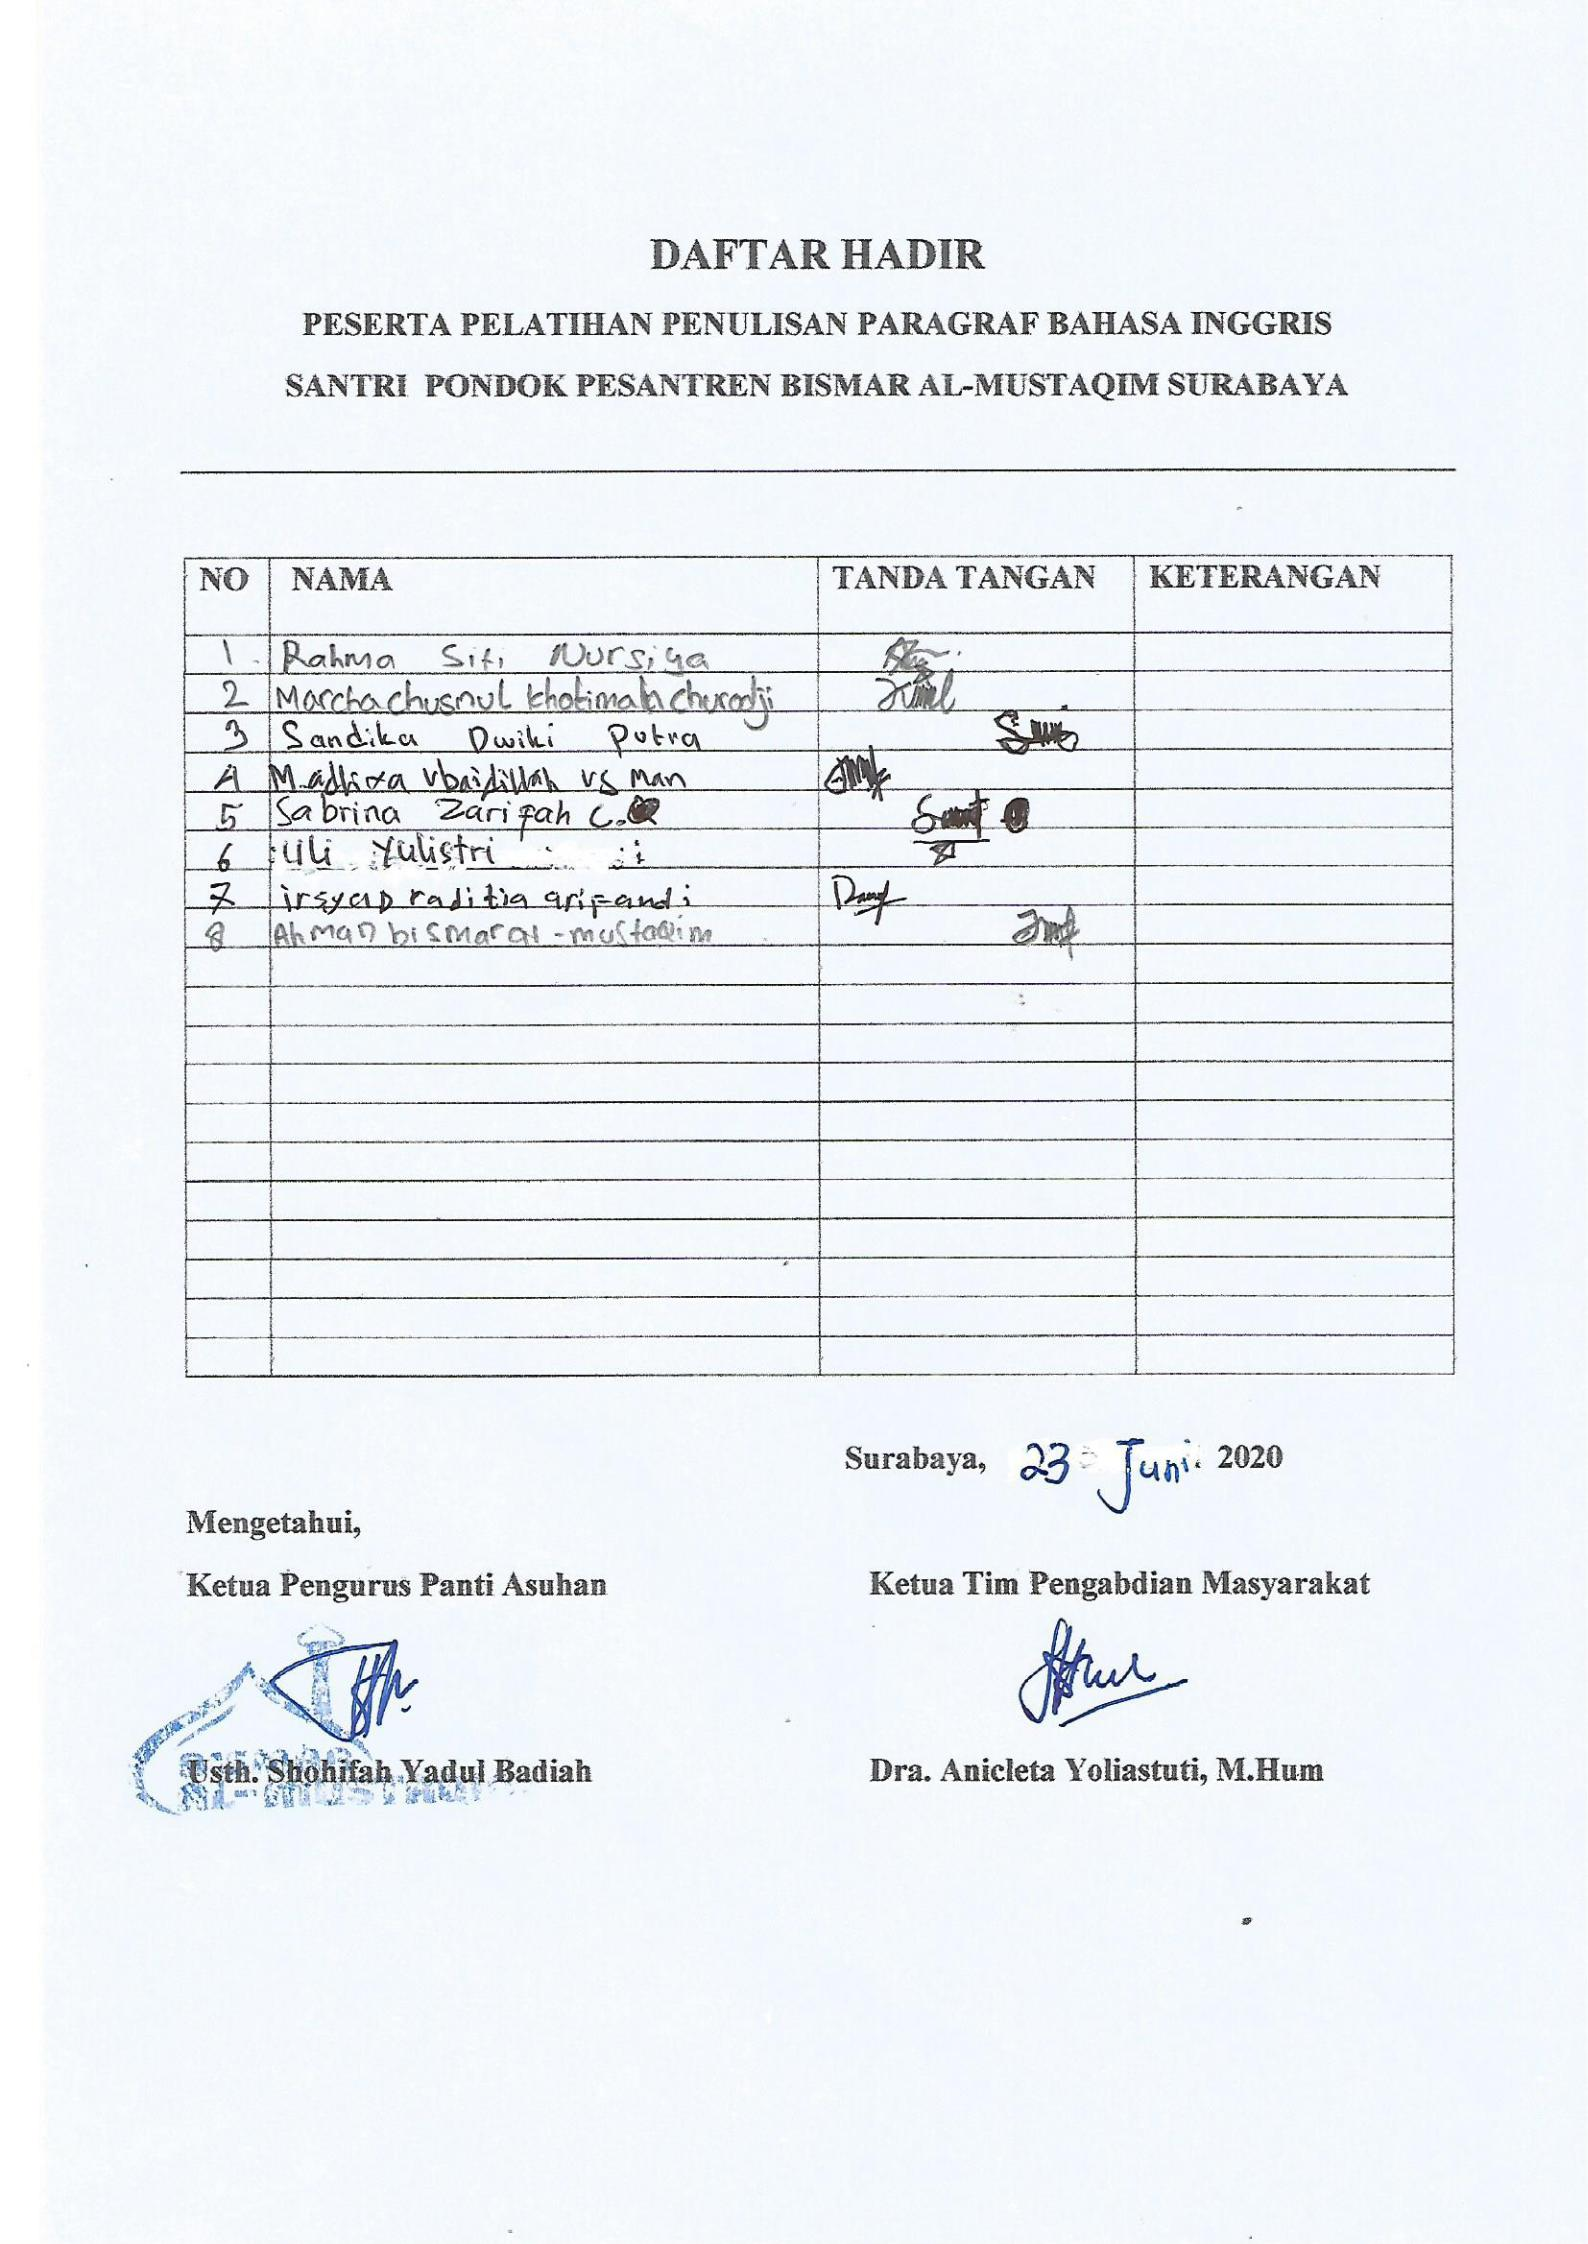 DAFTAR HADIR
PESERTA PELATIHAN PENULISAN PARAGRAF BAHASA INGGRIS
SANTRI PONDOK PESANTREN BISMAR AL-MUSTAQIM SURABAYA
NO NAMA TANDA TANGAN KETERANGAN
1. Rahma Siti Nursiya
2 Marcha chusnul khotimah churodji
3 Sandika Dwiki Putra
4 ubaidillah usman
5 Sabrina Zarifah C.
6 Uli Yulistri
7 irsyad raditia arifandi
8 Ahmad bismar al-mustaqim
Surabaya, 23 Juni 2020
Mengetahui,
Ketua Pengurus Panti Asuhan Ketua Tim Pengabdian Masyarakat
Usth. Shohifah Yadul Badiah Dra. Anicleta Yoliastuti, M.Hum